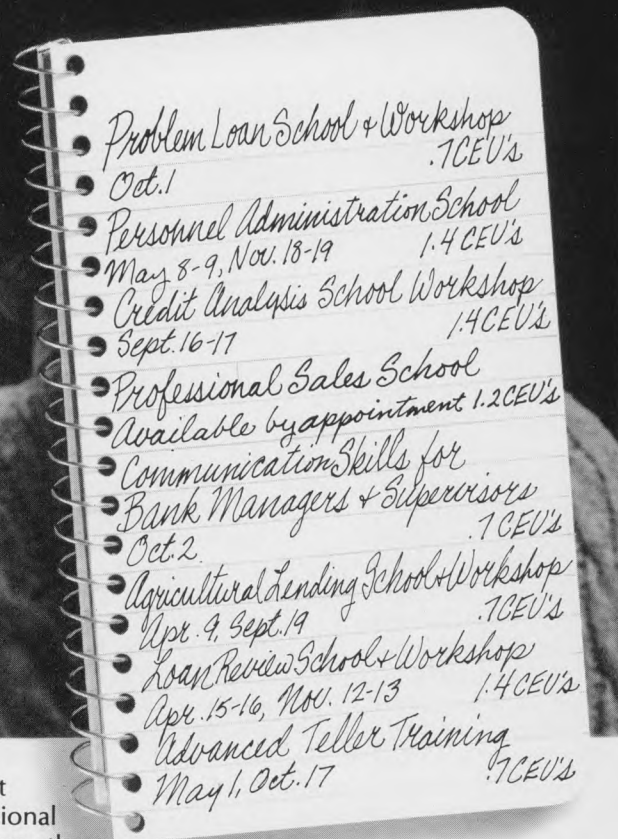 Problem Loan School & Workshop
Oct. 1 .7 CEU's
Personnel Administration School
May 8-9, Nov. 18-19 1.4 CEU's
Credit Analysis School Workshop
Sept. 16-17 1.4 CEU's
Professional Sales School
Available by appointment 1.2 CEU's
Communication Skills for
Bank Managers & Supervisors
Oct. 2 .7 CEU's
Agricultural Lending School & Workshop
Apr. 9, Sept. 19 .7 CEU's
Loan Review School & Workshop
Apr. 15-16, Nov. 12-13 1.4 CEU's
Advanced Teller Training
May 1, Oct. 17 .7 CEU's